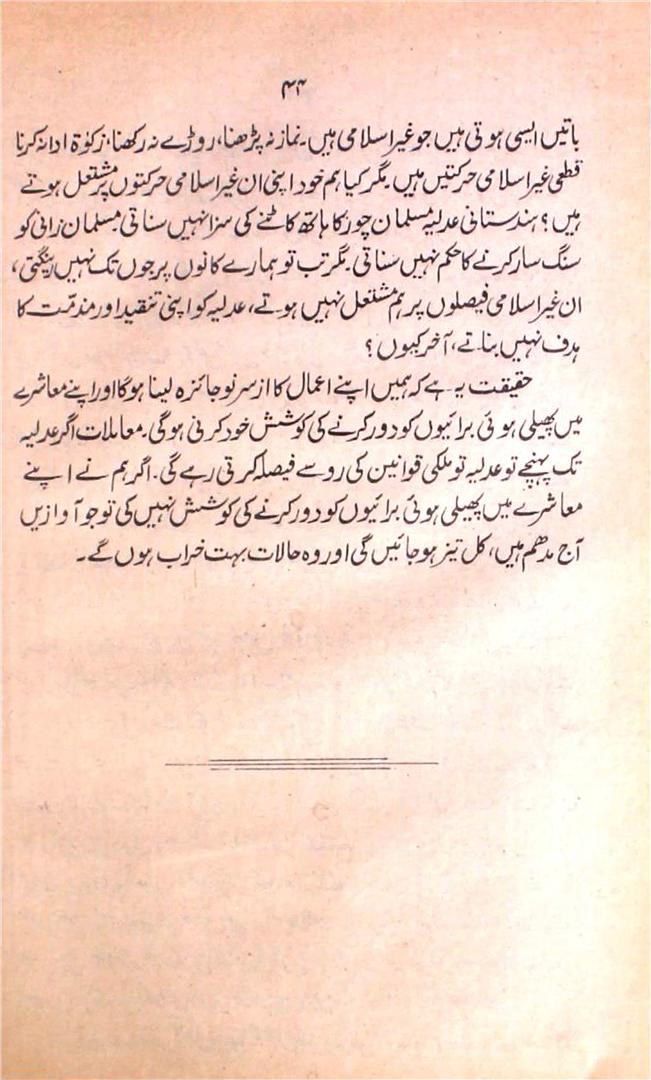 ۴۴
باتیں ایسی ہوتی ہیں جو غیر اسلامی ہیں۔ نماز نہ پڑھنا، روزے نہ رکھنا، زکوٰۃ ادا نہ کرنا
قطعی غیر اسلامی حرکتیں ہیں۔ مگر کیا ہم خود اپنی ان غیر اسلامی حرکتوں پر مشتعل ہوتے
ہیں؟ ہندستانی عدلیہ مسلمان چور کا ہاتھ کاٹنے کی سزا نہیں سناتی۔ مسلمان زانی کو
سنگ سار کرنے کا حکم نہیں سناتی۔ مگر تب تو ہمارے کانوں پر جوں تک نہیں رینگتی،
ان غیر اسلامی فیصلوں پر ہم مشتعل نہیں ہوتے، عدلیہ کو اپنی تنقید اور مذمّت کا
ہدف نہیں بناتے، آخر کیوں؟
حقیقت یہ ہے کہ ہمیں اپنے اعمال کا از سرِ نو جائزہ لینا ہوگا اور اپنے معاشرے
میں پھیلی ہوئی برائیوں کو دور کرنے کی کوشش خود کرنی ہوگی۔ معاملات اگر عدلیہ
تک پہنچے تو عدلیہ تو ملکی قوانین کی رو سے فیصلہ کرتی رہے گی۔ اگر ہم نے اپنے
معاشرے میں پھیلی ہوئی برائیوں کو دور کرنے کی کوشش نہیں کی تو جو آوازیں
آج مدھم ہیں، کل تیز ہو جائیں گی اور وہ حالات بہت خراب ہوں گے۔